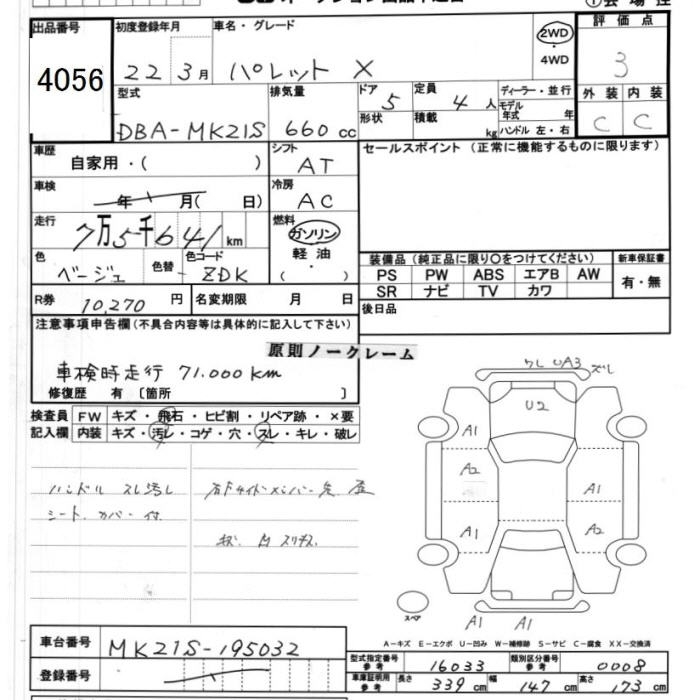 出品番号
4056
初度登録年月 車名・グレード
22 3月 パレット X
2WD
4WD
評価点
3
外装 内装
C C
型式 排気量
DBA-MK21S 660 cc
ドア 定員
5 4 人
形状 積載
kg
ディーラー・並行
モデル年式 年
ハンドル 左・右
車歴
自家用・( )
シフト
AT
車検
年 月( 日)
冷房
AC
走行
7万5千641 km
燃料
ガソリン
軽油・
( )
色 色替 色コード
ベージュ ZDK
R券 10,270 円 名変期限 月 日
セールスポイント (正常に機能するものに限ります)
装備品 (純正品に限り○をつけてください) 新車保証書
PS PW ABS エアB AW 有・無
SR ナビ TV カワ
後日品
注意事項申告欄 (不具合内容等は具体的に記入して下さい)
原則ノークレーム
車検時走行 71.000km
修復歴 有 〔箇所 〕
検査員 FW キズ・飛石・ヒビ割・リペア跡・×要
記入欄 内装 キズ・汚レ・コゲ・穴・スレ・キレ・破レ
ハンドル スレ 汚レ
シート カバー 付
ワレ UA3 ズレ
U2
A1
A2
A1
A1
A2
A1 A1
スペア
A-キズ E-エクボ U-凹み W-補修跡 S-サビ C-腐食 XX-交換済
車台番号 MK21S-195032
登録番号
型式指定番号 参考 16033 類別区分番号 参考 0008
車庫証明用 参考 長さ 339 cm 幅 147 cm 高さ 173 cm